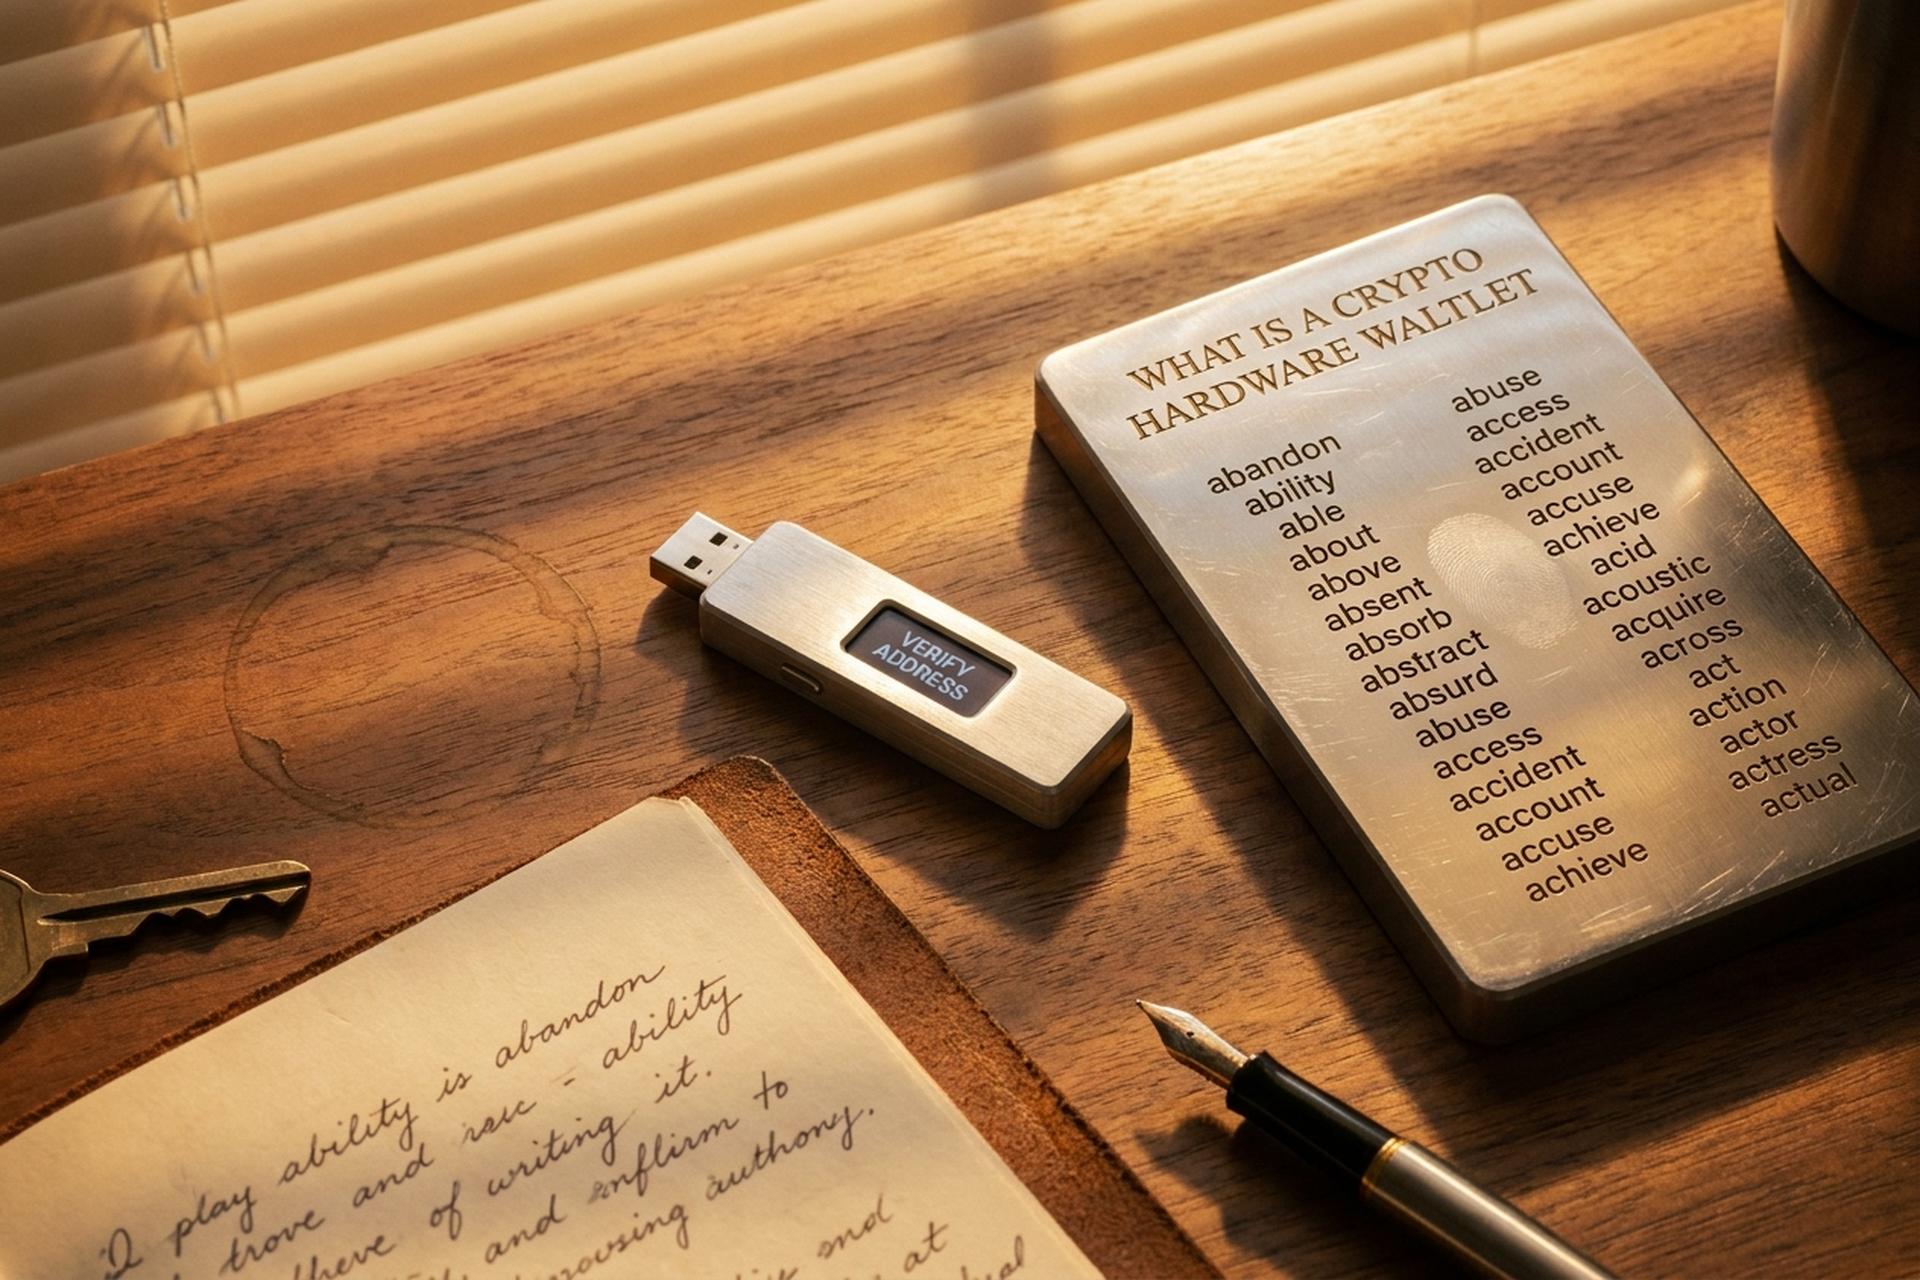 WHAT IS A CRYPTO
HARDWARE WALTLET
abandon
ability
able
about
above
absent
absorb
abstract
absurd
abuse
access
accident
account
accuse
achieve
abuse
access
accident
account
accuse
achieve
acid
acoustic
acquire
across
act
action
actor
actress
actual
VERIFY
ADDRESS
play ability is abandon
trove and - ability
of writing it.
and to
authony.
at